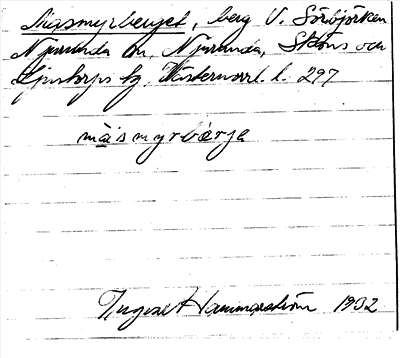 Måsmyrberget, berg V. Sörbjörken
Njurunda sn, Njurunda, Sköns och
Ljustorps tg, Västernorrl. l. 297
mäismyrbärje
Ingvar Hammarström 1932